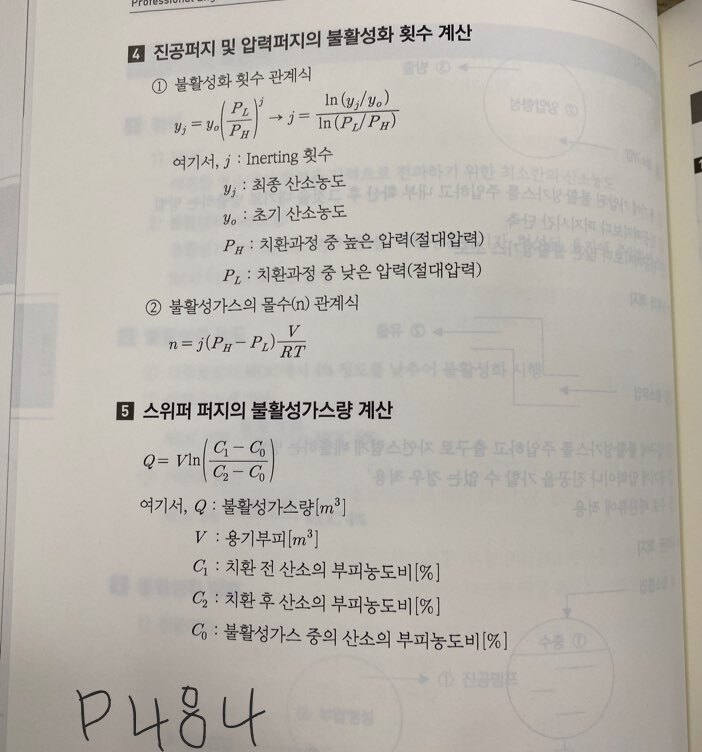 Professional
4 진공퍼지 및 압력퍼지의 불활성화 횟수 계산
① 불활성화 횟수 관계식
y_j = y_o(P_L/P_H)^j → j = ln(y_j/y_o)/ln(P_L/P_H)
여기서, j : Inerting 횟수
y_j : 최종 산소농도
y_o : 초기 산소농도
P_H : 치환과정 중 높은 압력(절대압력)
P_L : 치환과정 중 낮은 압력(절대압력)
② 불활성가스의 몰수(n) 관계식
n = j(P_H - P_L) V/RT
5 스위퍼 퍼지의 불활성가스량 계산
Q = V ln((C_1 - C_0)/(C_2 - C_0))
여기서, Q : 불활성가스량[m³]
V : 용기부피[m³]
C_1 : 치환 전 산소의 부피농도비[%]
C_2 : 치환 후 산소의 부피농도비[%]
C_0 : 불활성가스 중의 산소의 부피농도비[%]
P484